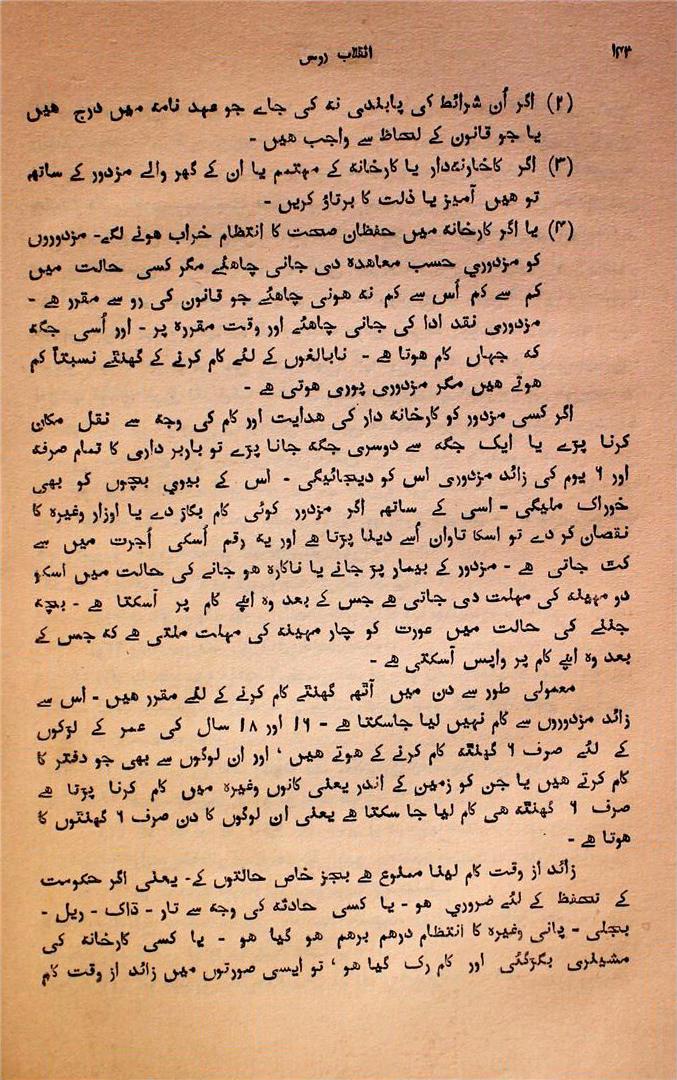 ۱۴۳ انقلاب روس
(۲) اگر اُن شرائط کی پابندی نه کی جاے جو عهد نامه میں درج هیں
یا جو قانون کے لحاظ سے واجب هیں -
(۳) اگر کاخاونه‌دار یا کارخانه کے مهتمم یا ان کے گهر والے مزدور کے ساتهه
تو هیں آمیز یا ذلت کا برتاؤ کریں -
(۴) یا اگر کارخانه میں حفظان صحت کا انتظام خراب هونے لگے- مزدوروں
کو مزدوری حسب معاهده دی جانی چاهئے مگر کسی حالت میں
کم سے کم اُس سے کم نه هونی چاهئے جو قانون کی رو سے مقرر هے -
مزدوری نقد ادا کی جانی چاهئے اور وقت مقرره پر - اور اُسی جگه
که جهاں کام هوتا هے - نابالغوں کے لئے کام کرنے کے گهنٹے نسبتاً کم
هوتے هیں مگر مزدوری پوری هوتی هے -
اگر کسی مزدور کو کارخانه دار کی هدایت اور کام کی وجه سے نقل مکان
کرنا پڑے یا ایک جگه سے دوسری جگه جانا پڑے تو باربر داری کا تمام صرفه
اور ۶ یوم کی زائد مزدوری اس کو دیجائیگی - اس کے بیوی بچوں کو بهی
خوراک ملیگی - اسی کے ساتهه اگر مزدور کوئی کام بگاڑ دے یا اوزار وغیره کا
نقصان کر دے تو اسکا تاوان اُسے دینا پڑتا هے اور یه رقم اُسکی اُجرت میں سے
کٹ جاتی هے - مزدور کے بیمار پڑ جانے یا ناکاره هو جانے کی حالت میں اسکو
دو مهینه کی مهلت دی جاتی هے جس کے بعد وه اپنے کام پر آسکتا هے - بچه
جننے کی حالت میں عورت کو چار مهینه کی مهلت ملتی هے که جس کے
بعد وه اپنے کام پر واپس آسکتی هے -
معمولی طور سے دن میں آٹهه گهنٹے کام کرنے کے لئے مقرر هیں - اس سے
زائد مزدوروں سے کام نهیں لیا جاسکتا هے - ۱۶ اور ۱۸ سال کی عمر کے لڑکوں
کے لئے صرف ۶ گهنٹه کام کرنے کے هوتے هیں ‘ اور ان لوگوں سے بهی جو دفتر کا
کام کرتے هیں یا جن کو زمین کے اندر یعنی کانوں وغیره میں کام کرنا پڑتا هے
صرف ۶ گهنٹه هی کام لیا جا سکتا هے یعنی ان لوگوں کا دن صرف ۶ گهنٹوں کا
هوتا هے -
زائد از وقت کام لینا ممنوع هے بجز خاص حالتوں کے- یعنی اگر حکومت
کے تحفظ کے لئے ضروری هو - یا کسی حادثه کی وجه سے تار - ڈاک - ریل -
بجلی - پانی وغیره کا انتظام درهم برهم هو گیا هو - یا کسی کارخانه کی
مشینری بگڑگئی اور کام رک گیا هو ‘ تو ایسی صورتوں میں زائد از وقت کام